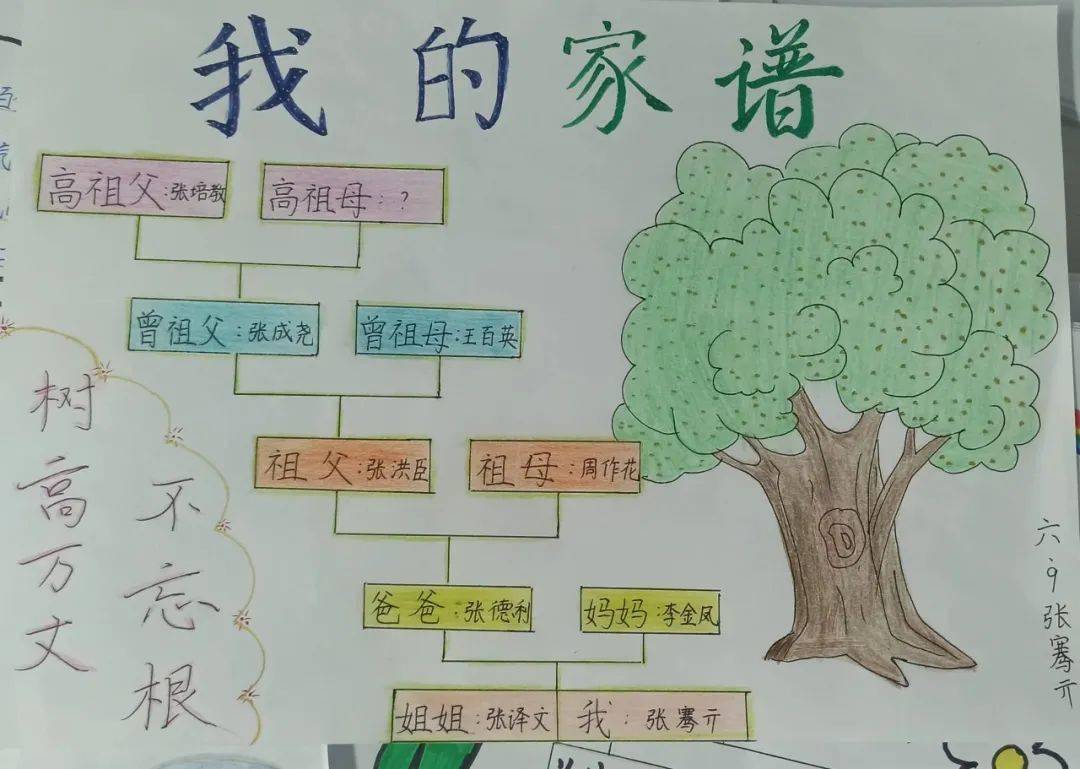 我的家谱
高祖父:张培教
高祖母:?
曾祖父:张成尧
曾祖母:王百英
祖父:张洪臣
祖母:周作花
爸爸:张德利
妈妈:李金凤
姐姐:张译文
我:张骞亓
树高万丈
不忘根
六.9张骞亓